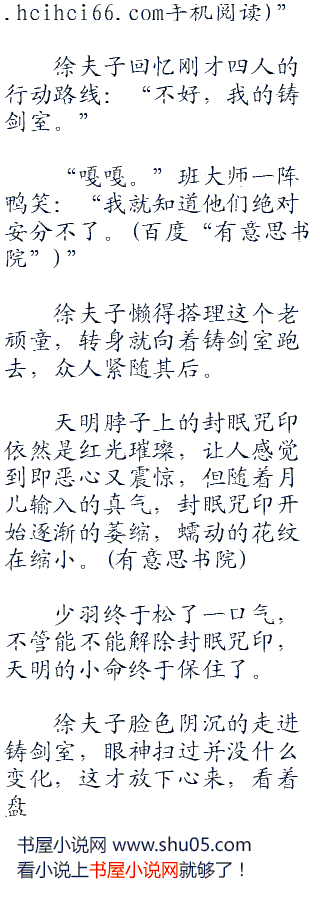 .hcihci66.com手机阅读)”
徐夫子回忆刚才四人的
行动路线：“不好，我的铸
剑室。”
“嘎嘎。”班大师一阵
鸭笑：“我就知道他们绝对
安分不了。(百度“有意思书
院”)”
徐夫子懒得搭理这个老
顽童，转身就向着铸剑室跑
去，众人紧随其后。
天明脖子上的封眠咒印
依然是红光璀璨，让人感觉
到即恶心又震惊，但随着月
儿输入的真气，封眠咒印开
始逐渐的萎缩，蠕动的花纹
在缩小。(有意思书院)
少羽终于松了一口气，
不管能不能解除封眠咒印，
天明的小命终于保住了。
徐夫子脸色阴沉的走进
铸剑室，眼神扫过并没什么
变化，这才放下心来，看着
盘
书屋小说网 www.shu05.com
看小说上书屋小说网就够了！